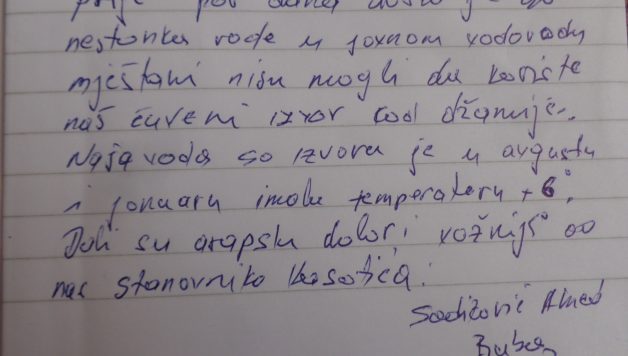 prije par dana došlo je do
nestanka vode u javnom vodovodu
mještani nisu mogli da koriste
naš čuveni izvor kod džamije.
Naša voda so izvora je u avgustu
i januaru imala temperaturu + 6°.
Dali su arapski dolari važniji od
nas stanovnika Kasatića.
Sadiković Ahmed